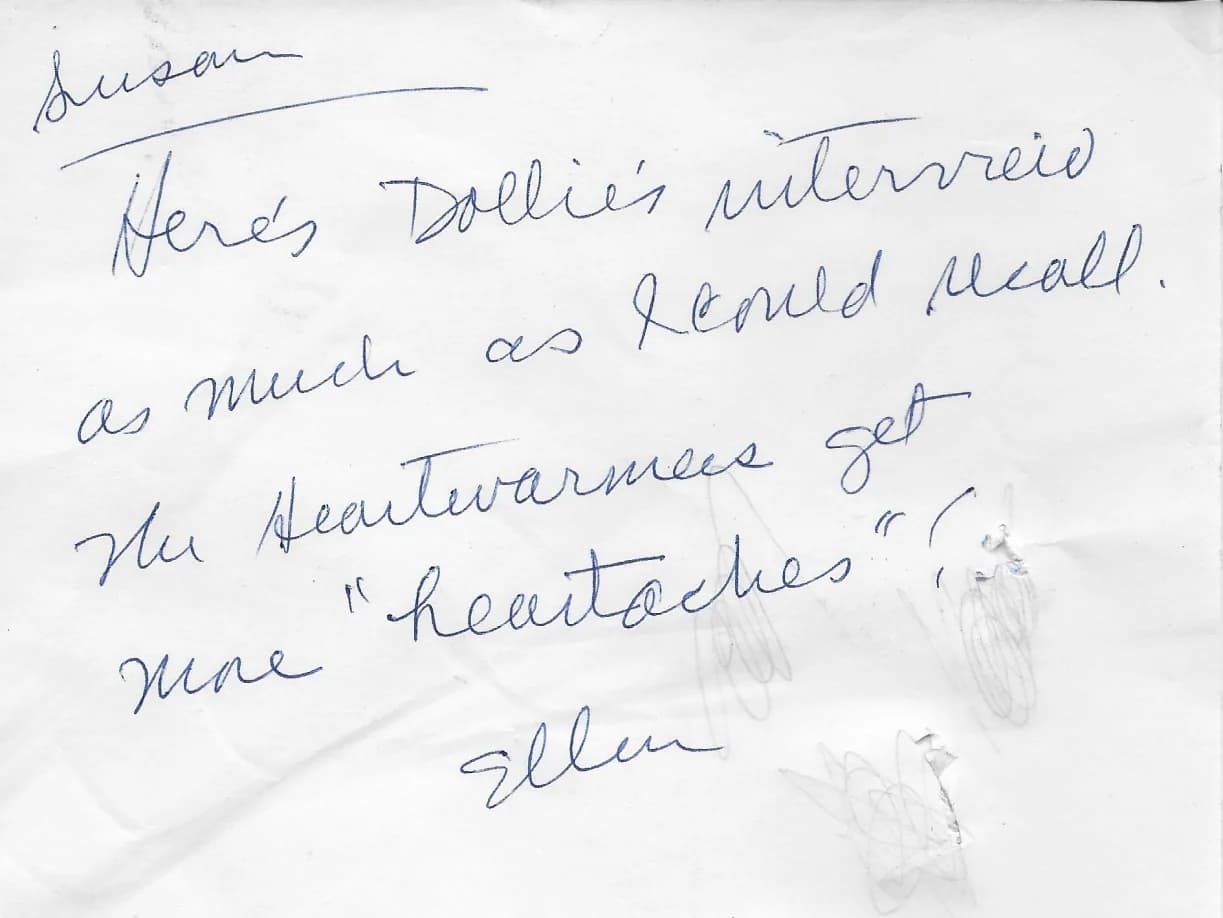 Susan
Here's Dollie's interview
as much as I could recall.
The Heartwarmers get
more "heartaches"!
Ellen